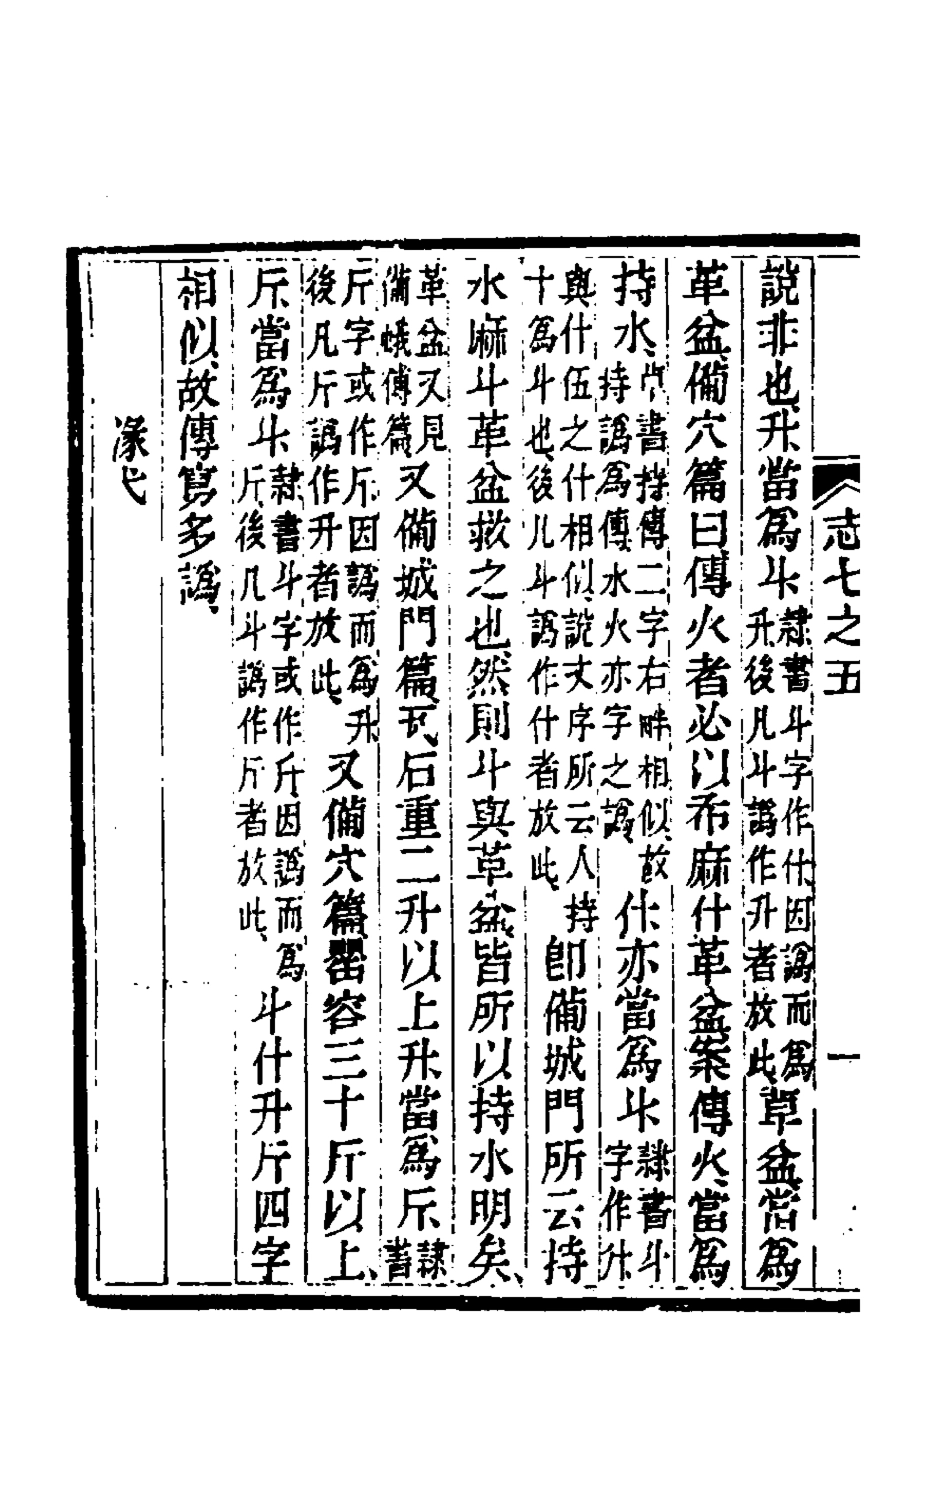 志七之五
一
說非也升當爲斗隸書斗字作什因譌而爲升後凡斗譌作升者放此草盆當爲
革盆備穴篇曰傳火者必以布麻什革盆案傳火當爲
持水隸書持傳二字右畔相似故持譌爲傳水火亦字之譌什亦當爲斗隸書斗字作什
與什伍之什相似說文序所云人持十爲斗也後凡斗譌作什者放此卽備城門所云持
水麻斗革盆救之也然則斗與革盆皆所以持水明矣
革盆又見備蛾傳篇又備城門篇瓦石重二升以上升當爲斤隸書
斤字或作斤因譌而爲升後凡斤譌作升者放此又備穴篇罌容三十斤以上
斤當爲斗隸書斗字或作斤因譌而爲斤後凡斗譌作斤者放此斗什升斤四字
相似故傳寫多譌
㒸弋